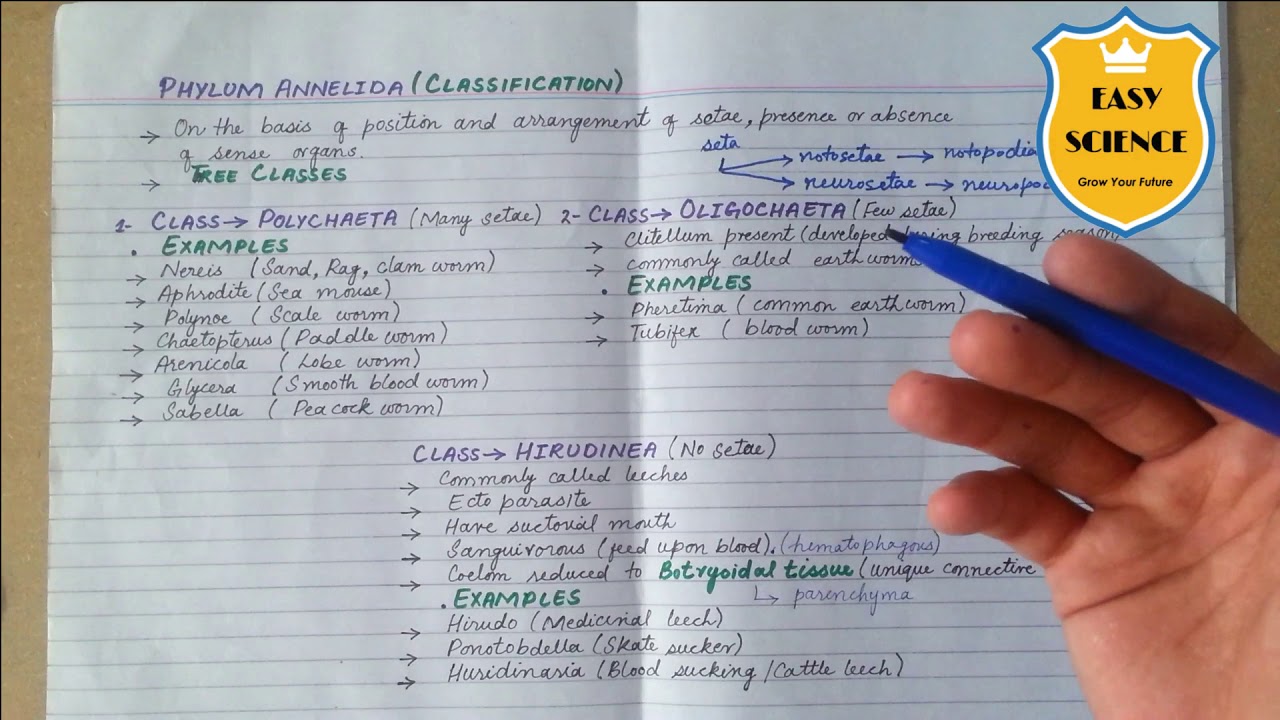 PHYLUM ANNELIDA (CLASSIFICATION)
→ On the basis of position and arrangement of setae, presence or absence
of sense organs.
seta → notosetae → notopodia
→ neurosetae → neuropo
→ TREE CLASSES
1- CLASS → POLYCHAETA (Many setae)
. EXAMPLES
→ Nereis (Sand, Rag, clam worm)
→ Aphrodite (Sea mouse)
→ Polynoe (Scale worm)
→ Chaetopterus (Paddle worm)
→ Arenicola (Lobe worm)
→ Glycera (Smooth blood worm)
→ Sabella (Peacock worm)
2- CLASS → OLIGOCHAETA (Few setae)
→ Clitellum present (developed during breeding season)
→ commonly called earthworms
. EXAMPLES
→ Pheretima (common earthworm)
→ Tubifex (blood worm)
CLASS → HIRUDINEA (No setae)
→ Commonly called leeches
→ Ecto parasite
→ Have suctorial mouth
→ Sanguivorous (feed upon blood). (hematophagous)
→ Coelom reduced to Botryoidal tissue (unique connective
↳ parenchyma
. EXAMPLES
→ Hirudo (Medicinal leech)
→ Ponotobdella (Skate sucker)
→ Huridinaria (Blood sucking / Cattle leech)
EASY
SCIENCE
Grow Your Future